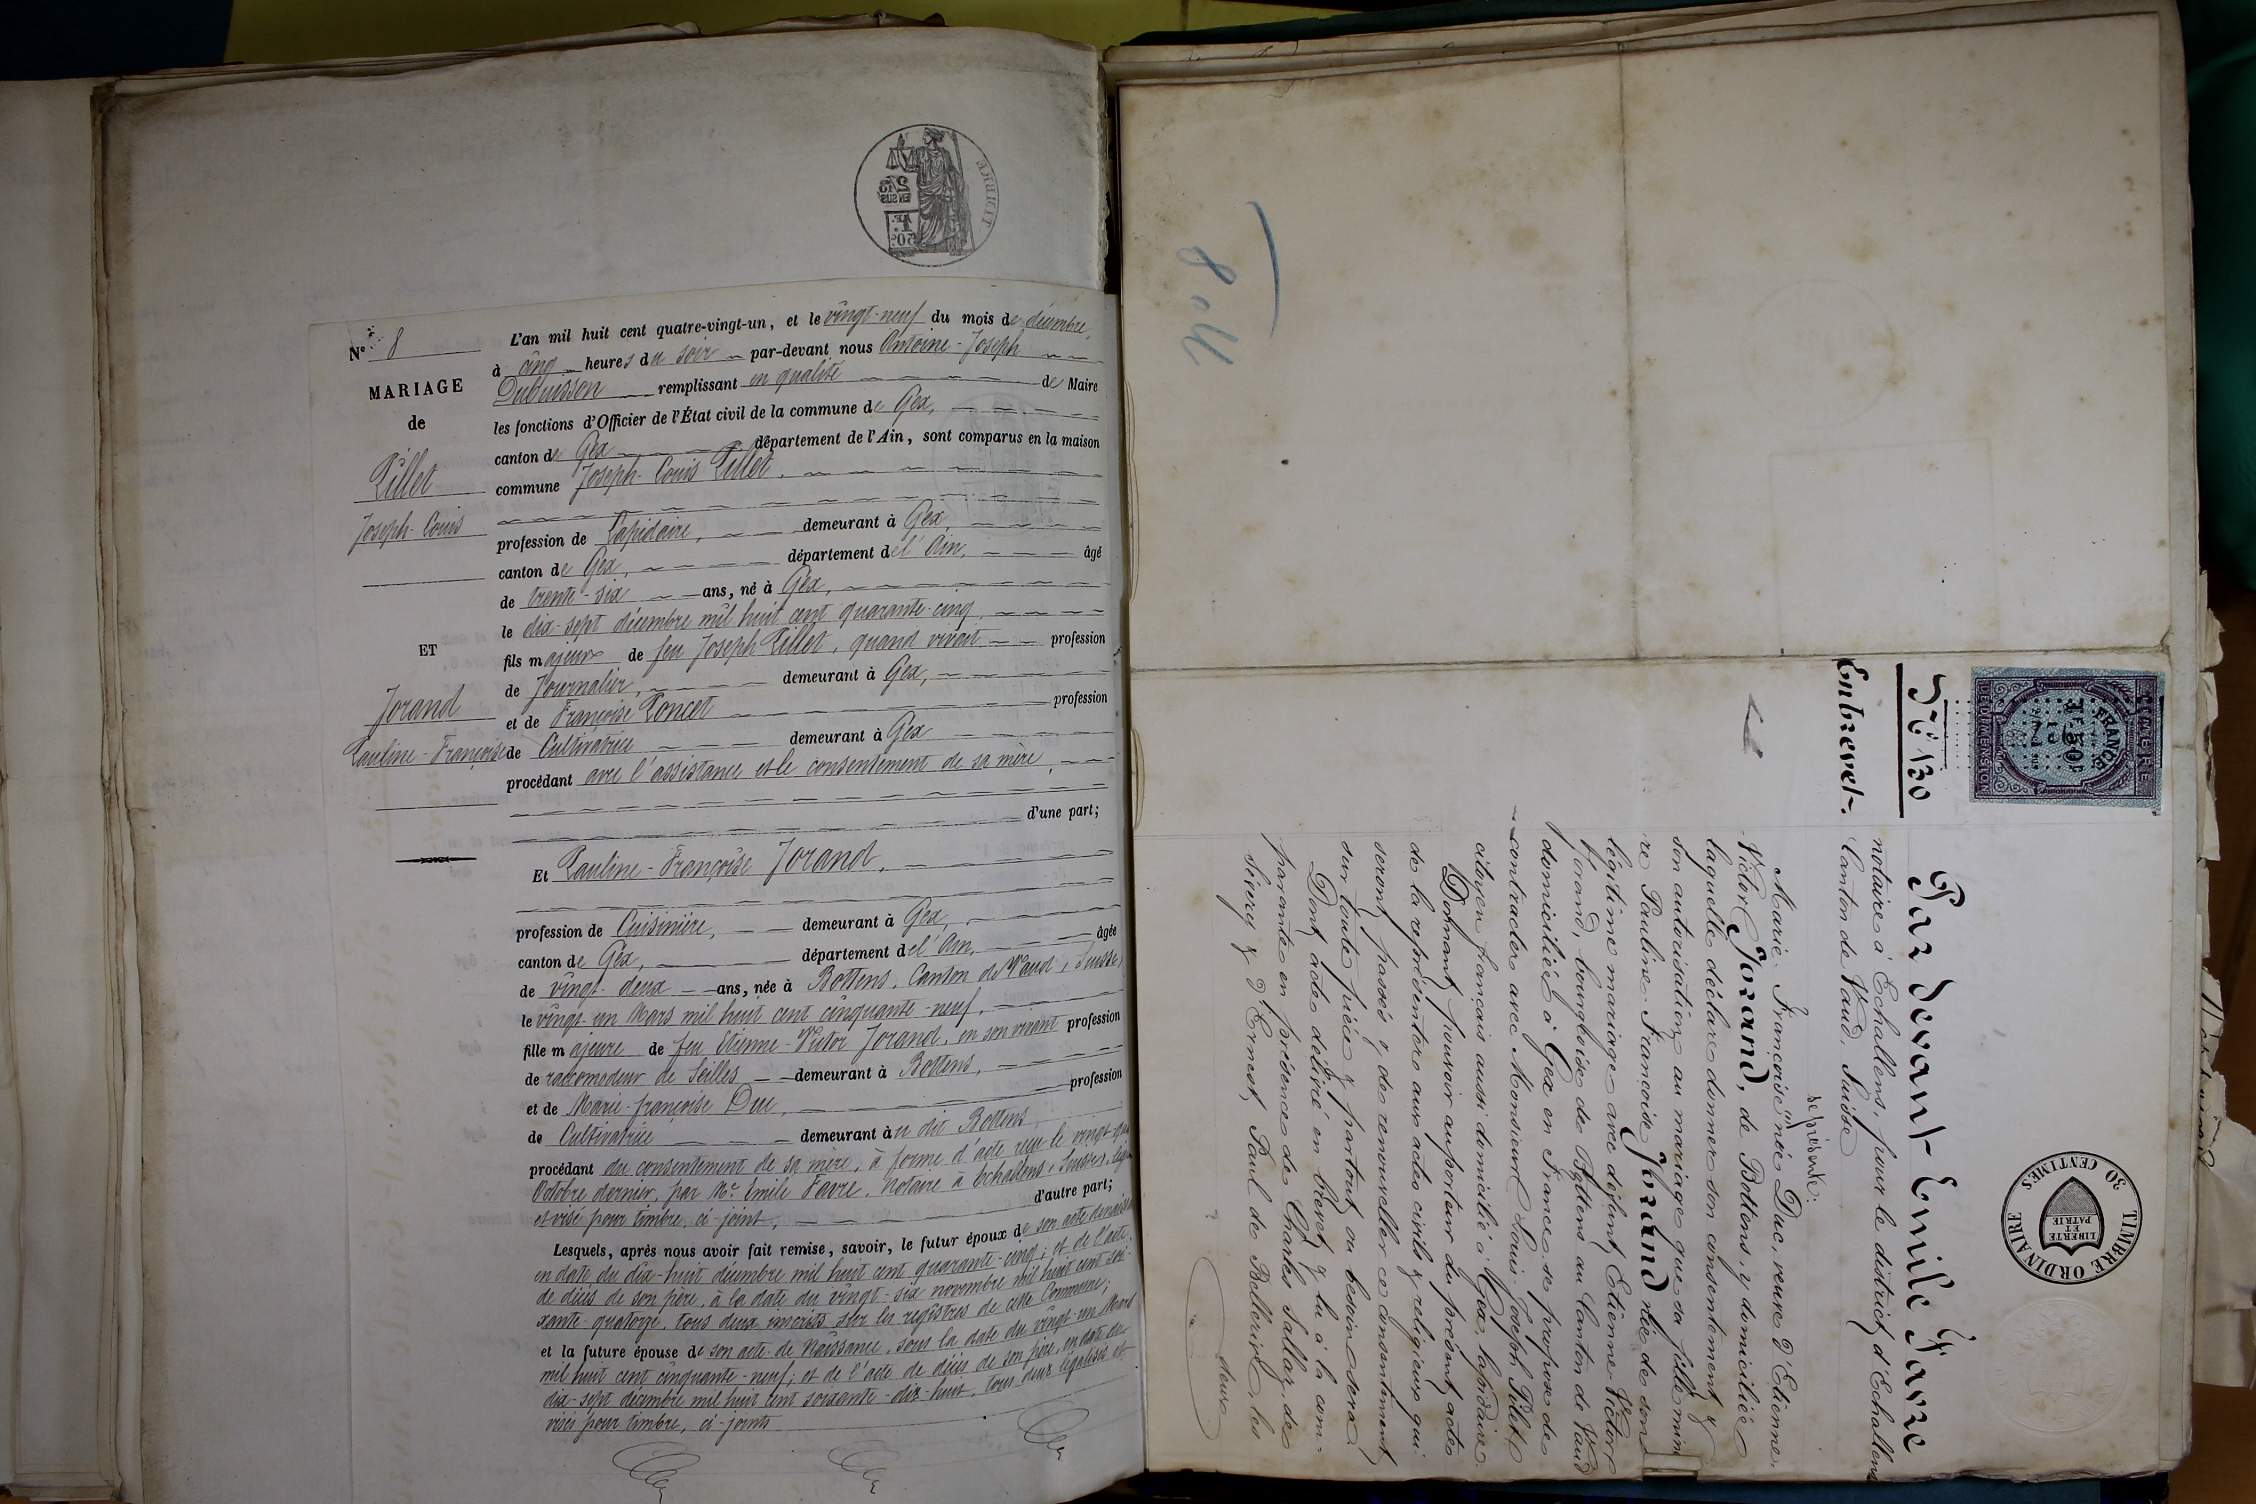 N° 8
MARIAGE
de
Pillet
Joseph-Louis
ET
Jorand
Pauline-Françoise
L'an mil huit cent quatre-vingt-un, et le vingt-neuf du mois de décembre
à cinq heures du soir par-devant nous Antoine-Joseph
Dubuisson remplissant en qualité de Maire
les fonctions d'Officier de l'État civil de la commune de Gex,
canton de Gex département de l'Ain, sont comparus en la maison
commune Joseph-Louis Pillet,
profession de Lapidaire, demeurant à Gex,
canton de Gex, département de l'Ain, âgé
de trente-six ans, né à Gex,
le dix-sept décembre mil huit cent quarante-cinq,
fils majeur de feu Joseph Pillet, quand vivait profession
de Journalier, demeurant à Gex,
et de Françoise Poncet profession
de Cultivatrice demeurant à Gex
procédant avec l'assistance et le consentement de sa mère,
d'une part;
Et Pauline-Françoise Jorand,
profession de Cuisinière, demeurant à Gex,
canton de Gex, département de l'Ain, âgée
de vingt-deux ans, née à Bottens, Canton de Vaud, (Suisse)
le vingt-un Mars mil huit cent cinquante-neuf,
fille majeure de feu Etienne-Victor Jorand, en son vivant profession
de raccomodeur de Seilles demeurant à Bottens,
et de Marie-françoise Duc, profession
de Cultivatrice demeurant au dit Bottens,
procédant du consentement de sa mère, à forme d'acte reçu le vingt
Octobre dernier, par Me Emile Favre, notaire à Echallens, (Suisse),
et visé pour timbre, ci-joint, d'autre part;
Lesquels, après nous avoir fait remise, savoir, le futur époux de son acte de naissance
en date du dix-huit décembre mil huit cent quarante-cinq; et de l'acte
de décès de son père, à la date du vingt-six novembre mil huit cent soi-
xante-quatorze, tous deux inscrits sur les registres de cette Commune;
et la future épouse de son acte de Naissance, sous la date du vingt-un Mars
mil huit cent cinquante-neuf; et de l'acte de décès de son père, en date du
dix-sept décembre mil huit cent soixante-dix-huit, tous deux légalisés et
visés pour timbre, ci-joints
8
TIMBRE
DE DIMENSION
FRANCE
TIMBRE ORDINAIRE
LIBERTÉ
ET
PATRIE
30 CENTIMES
En brevet.
Par devant Emile Favre
notaire à Echallens, pour le district d'Echallens
Canton de Vaud, Suisse
se présente:
Marie-Françoise née Duc, veuve d'Etienne-
Victor Jorand, de Bottens, y domiciliée
laquelle déclare donner son consentement &
son autorisation au mariage que sa fille
Pauline-Françoise Jorand née de son
légitime mariage avec défunt Etienne-Victor
Jorand, bourgeoise de Bottens au Canton de Vaud
domiciliée à Gex en France se propose de
contracter avec Monsieur Louis-Joseph Pilet
citoyen français aussi domicilié à Gex, lapidaire.
Donnant pouvoir au porteur du présent acte
de la représenter aux actes civils & religieux qui
seront passés & de renouveller ce consentement
sur toute pièce & partout où besoin sera.
Dont acte délivré en brevet & lu à la com-
parante en présence de Charles Sallaz de
& d'Ernest Paul de Bellerive, les
deux